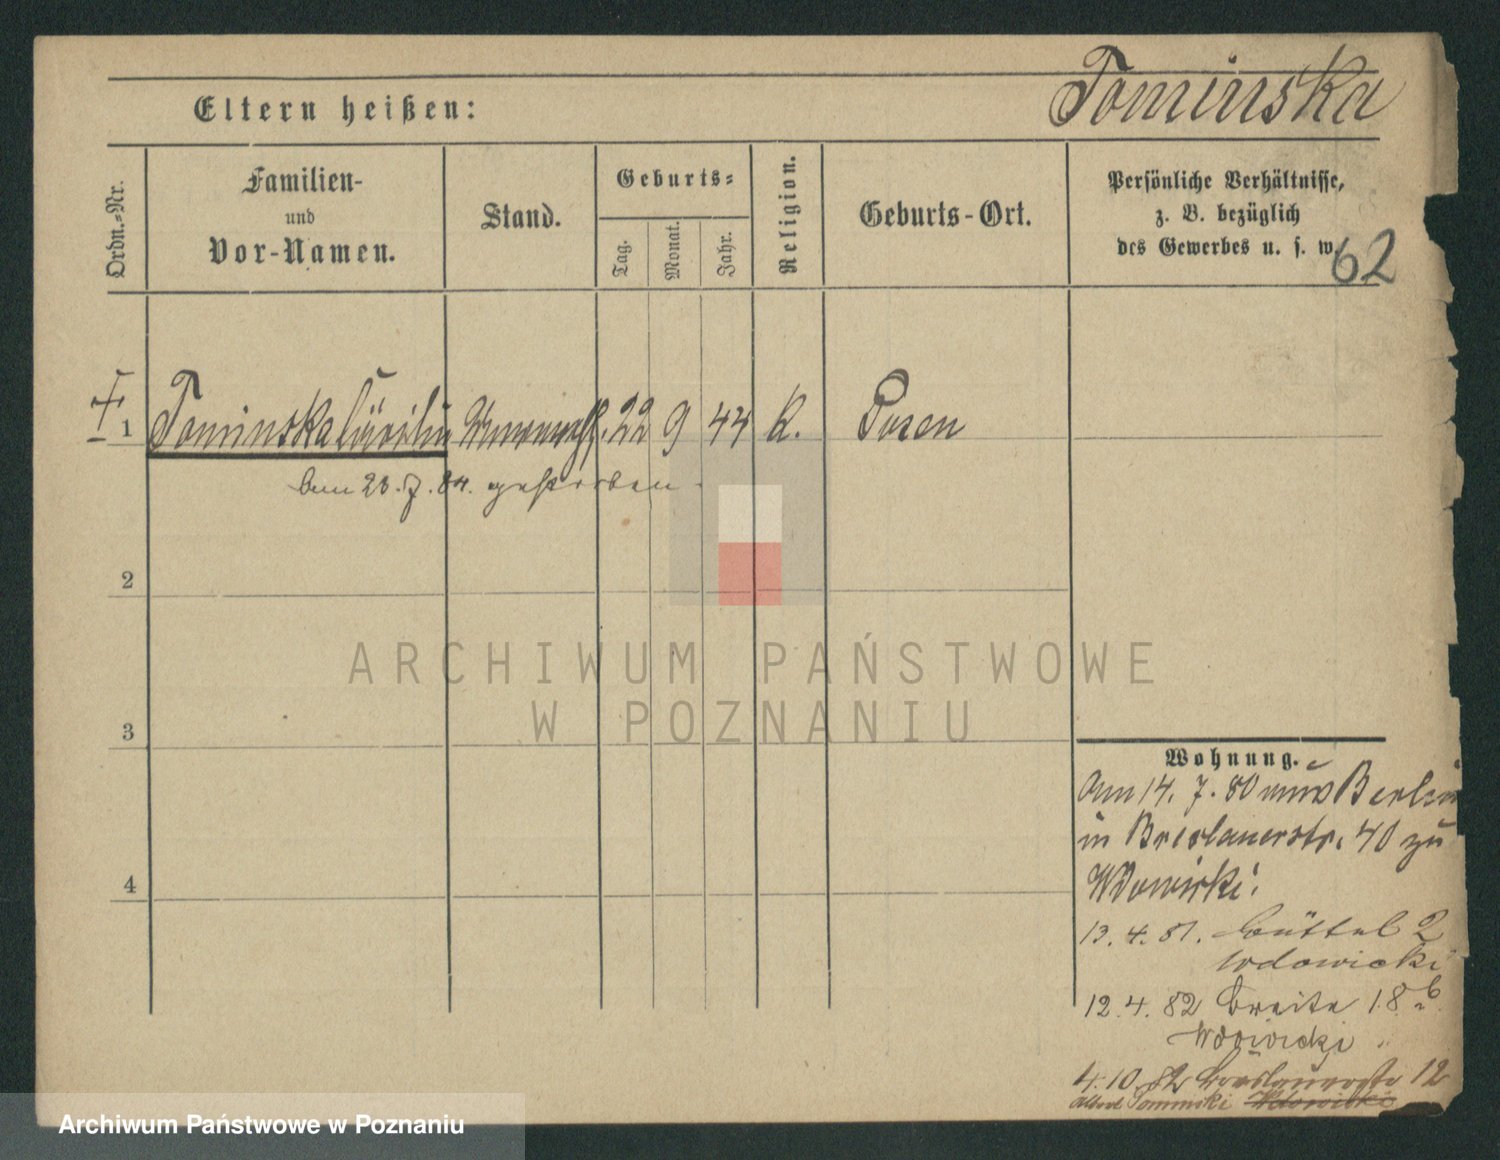 Tominska
Eltern heißen:
Ordn.-Nr.
Familien-
und
Vor-Namen.
Stand.
Geburts-
Tag.
Monat.
Jahr.
Religion.
Geburts-Ort.
Persönliche Verhältnisse,
z. B. bezüglich
des Gewerbes u. s. w.
62
1 Tominska 22 9 44 K. Posen
am 23. 7. 84. gestorben
2
3
4
ARCHIWUM PAŃSTWOWE
W POZNANIU
Wohnung.
Am 14. 7. 80 aus Berlin
in Breslauerstr. 40 zu
Wdowicki.
13. 4. 81. Büttel 2
Wdowicki
12. 4. 82 Breite 18 b
Wdowicki
4. 10. 82 Breslauerstr 12
Tominski Wdowicki
Archiwum Państwowe w Poznaniu